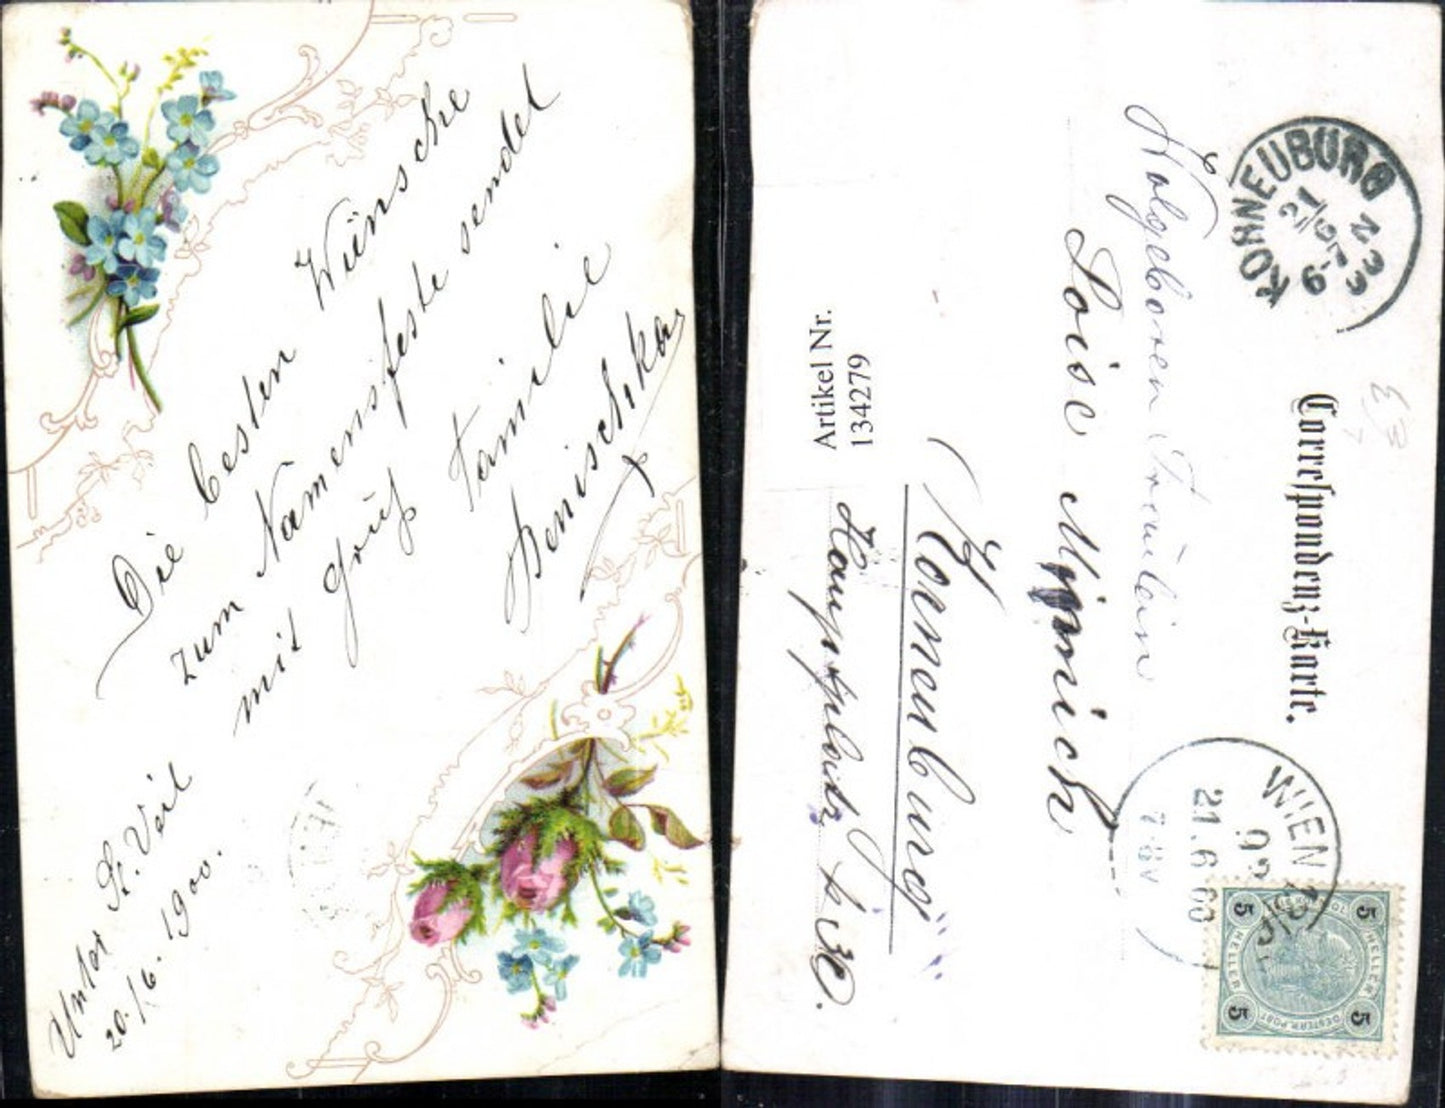 Die besten Wünsche
zum Namensfeste sendet
mit Gruß Familie
Benischka
Unter St. Veit
20./6. 1900.
KORNEUBURG
21/6
6-7 N
Correspondenz-Karte.
WIEN
21.6.00
5 5
HELLER HELLER
5 5
Fräulein
Loise
Korneuburg
Hauptplatz № 30.
Artikel Nr.
134279